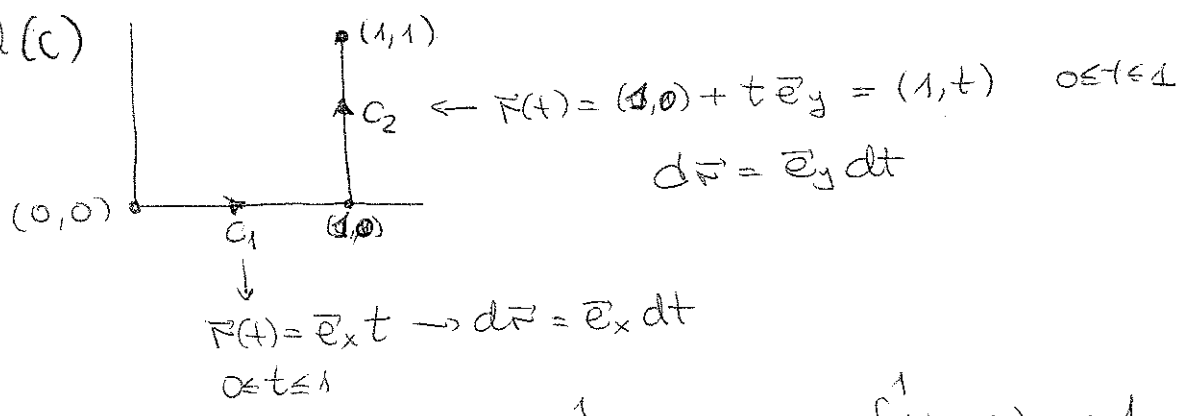 (C)
(1,1)
C₂ ← r⃗(t) = (1,0) + t e⃗y = (1,t) 0≤t≤1
dr⃗ = e⃗y dt
(0,0)
C₁
(1,0)
↓
r⃗(t) = e⃗x t → dr⃗ = e⃗x dt
0≤t≤1
1 1